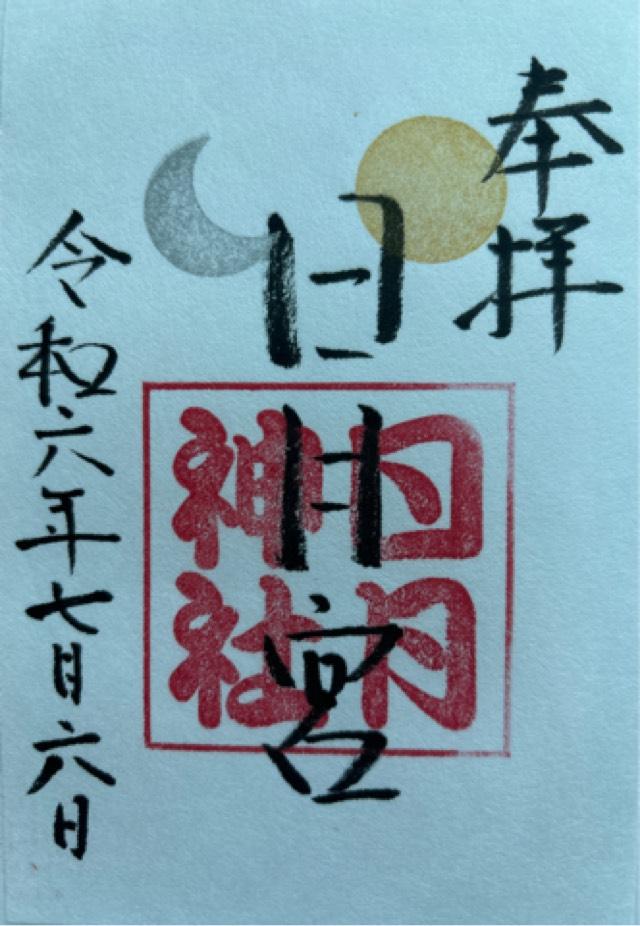 奉拝
日月宮
日月
神社
令和六年七月六日